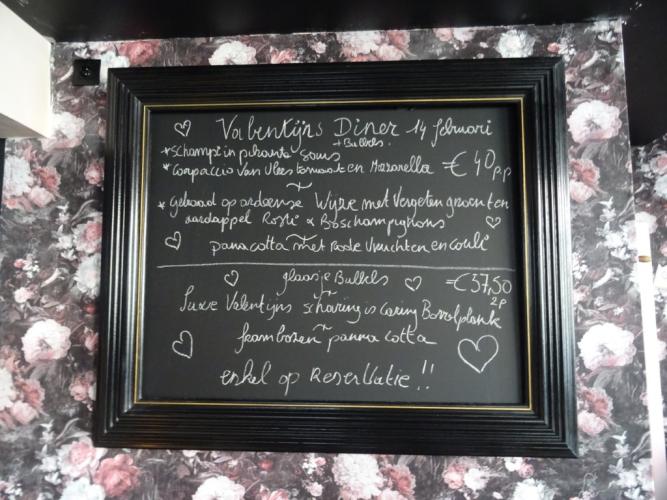 Valentijns Diner 14 februari
+ Bubbels.
* schampi in pikante saus
* Carpaccio van Vlees tomaat en Mozarella € 40 p.p
~
* Gebraad op ardeense Wijze met Vergeten groenten
aardappel Rosti & Boschampignons
~
panacotta met Rode Vruchten en couli
glaasje Bubbels = € 37,50
~ 2p
Luxe Valentijns sharing is caring Borrelplank
~
frambozen panna cotta
enkel op Reservatie !!